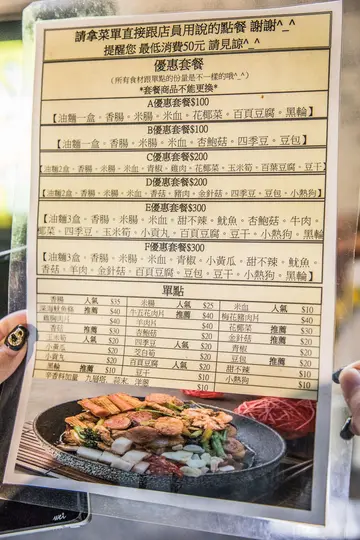 請拿菜單直接跟店員用說的點餐 謝謝^_^
提醒您 最低消費50元 請見諒^_^
優惠套餐
(所有食材跟單點的份量是不一樣的哦^_^)
*套餐商品不能更換*
A優惠套餐$100
【油麵一盒。香腸。米腸。米血。花椰菜。百頁豆腐。黑輪】
B優惠套餐$100
【油麵一盒。香腸。米腸。米血。杏鮑菇。四季豆。豆包】
C優惠套餐$200
【油麵2盒。香腸。米腸。米血。青椒。雞肉。花椰菜。玉米筍。百葉豆腐。豆干】
D優惠套餐$200
【油麵2盒。香腸。米腸。米血。香菇。豬肉。金針菇。四季豆。豆包。小熱狗】
E優惠套餐$300
【油麵3盒。香腸。米腸。米血。甜不辣。魷魚。杏鮑菇。牛肉
椰菜。四季豆。玉米筍。小貢丸。百頁豆腐。豆干。小熱狗。黑輪】
F優惠套餐$300
【油麵3盒。香腸。米腸。米血。青椒。小黃瓜。甜不辣。魷魚。
香菇。羊肉。金針菇。百頁豆腐。豆包。豆干。小熱狗。黑輪】
單點
香腸 人氣 $35 米腸 人氣 $25 米血 人氣 $10
深海魷魚條 推薦 $40 牛五花肉片 推薦 $40 梅花豬肉片 $40
雞胸肉片 $40 羊肉片 $40 花椰菜 推薦 $30
香菇 推薦 $30 杏鮑菇 $20 金針菇 推薦 $20
玉米筍 人氣 $20 四季豆 人氣 $20 青椒 $20
小黃瓜 $20 芝白菇 $20 豆包 推薦 $20
小貢丸 $20 百頁豆腐 人氣 $20 甜不辣 $10
黑輪 推薦 $10 豆干 $10 小熱狗 $10
辛香料加量 九層塔 蒜末 洋蔥 $10